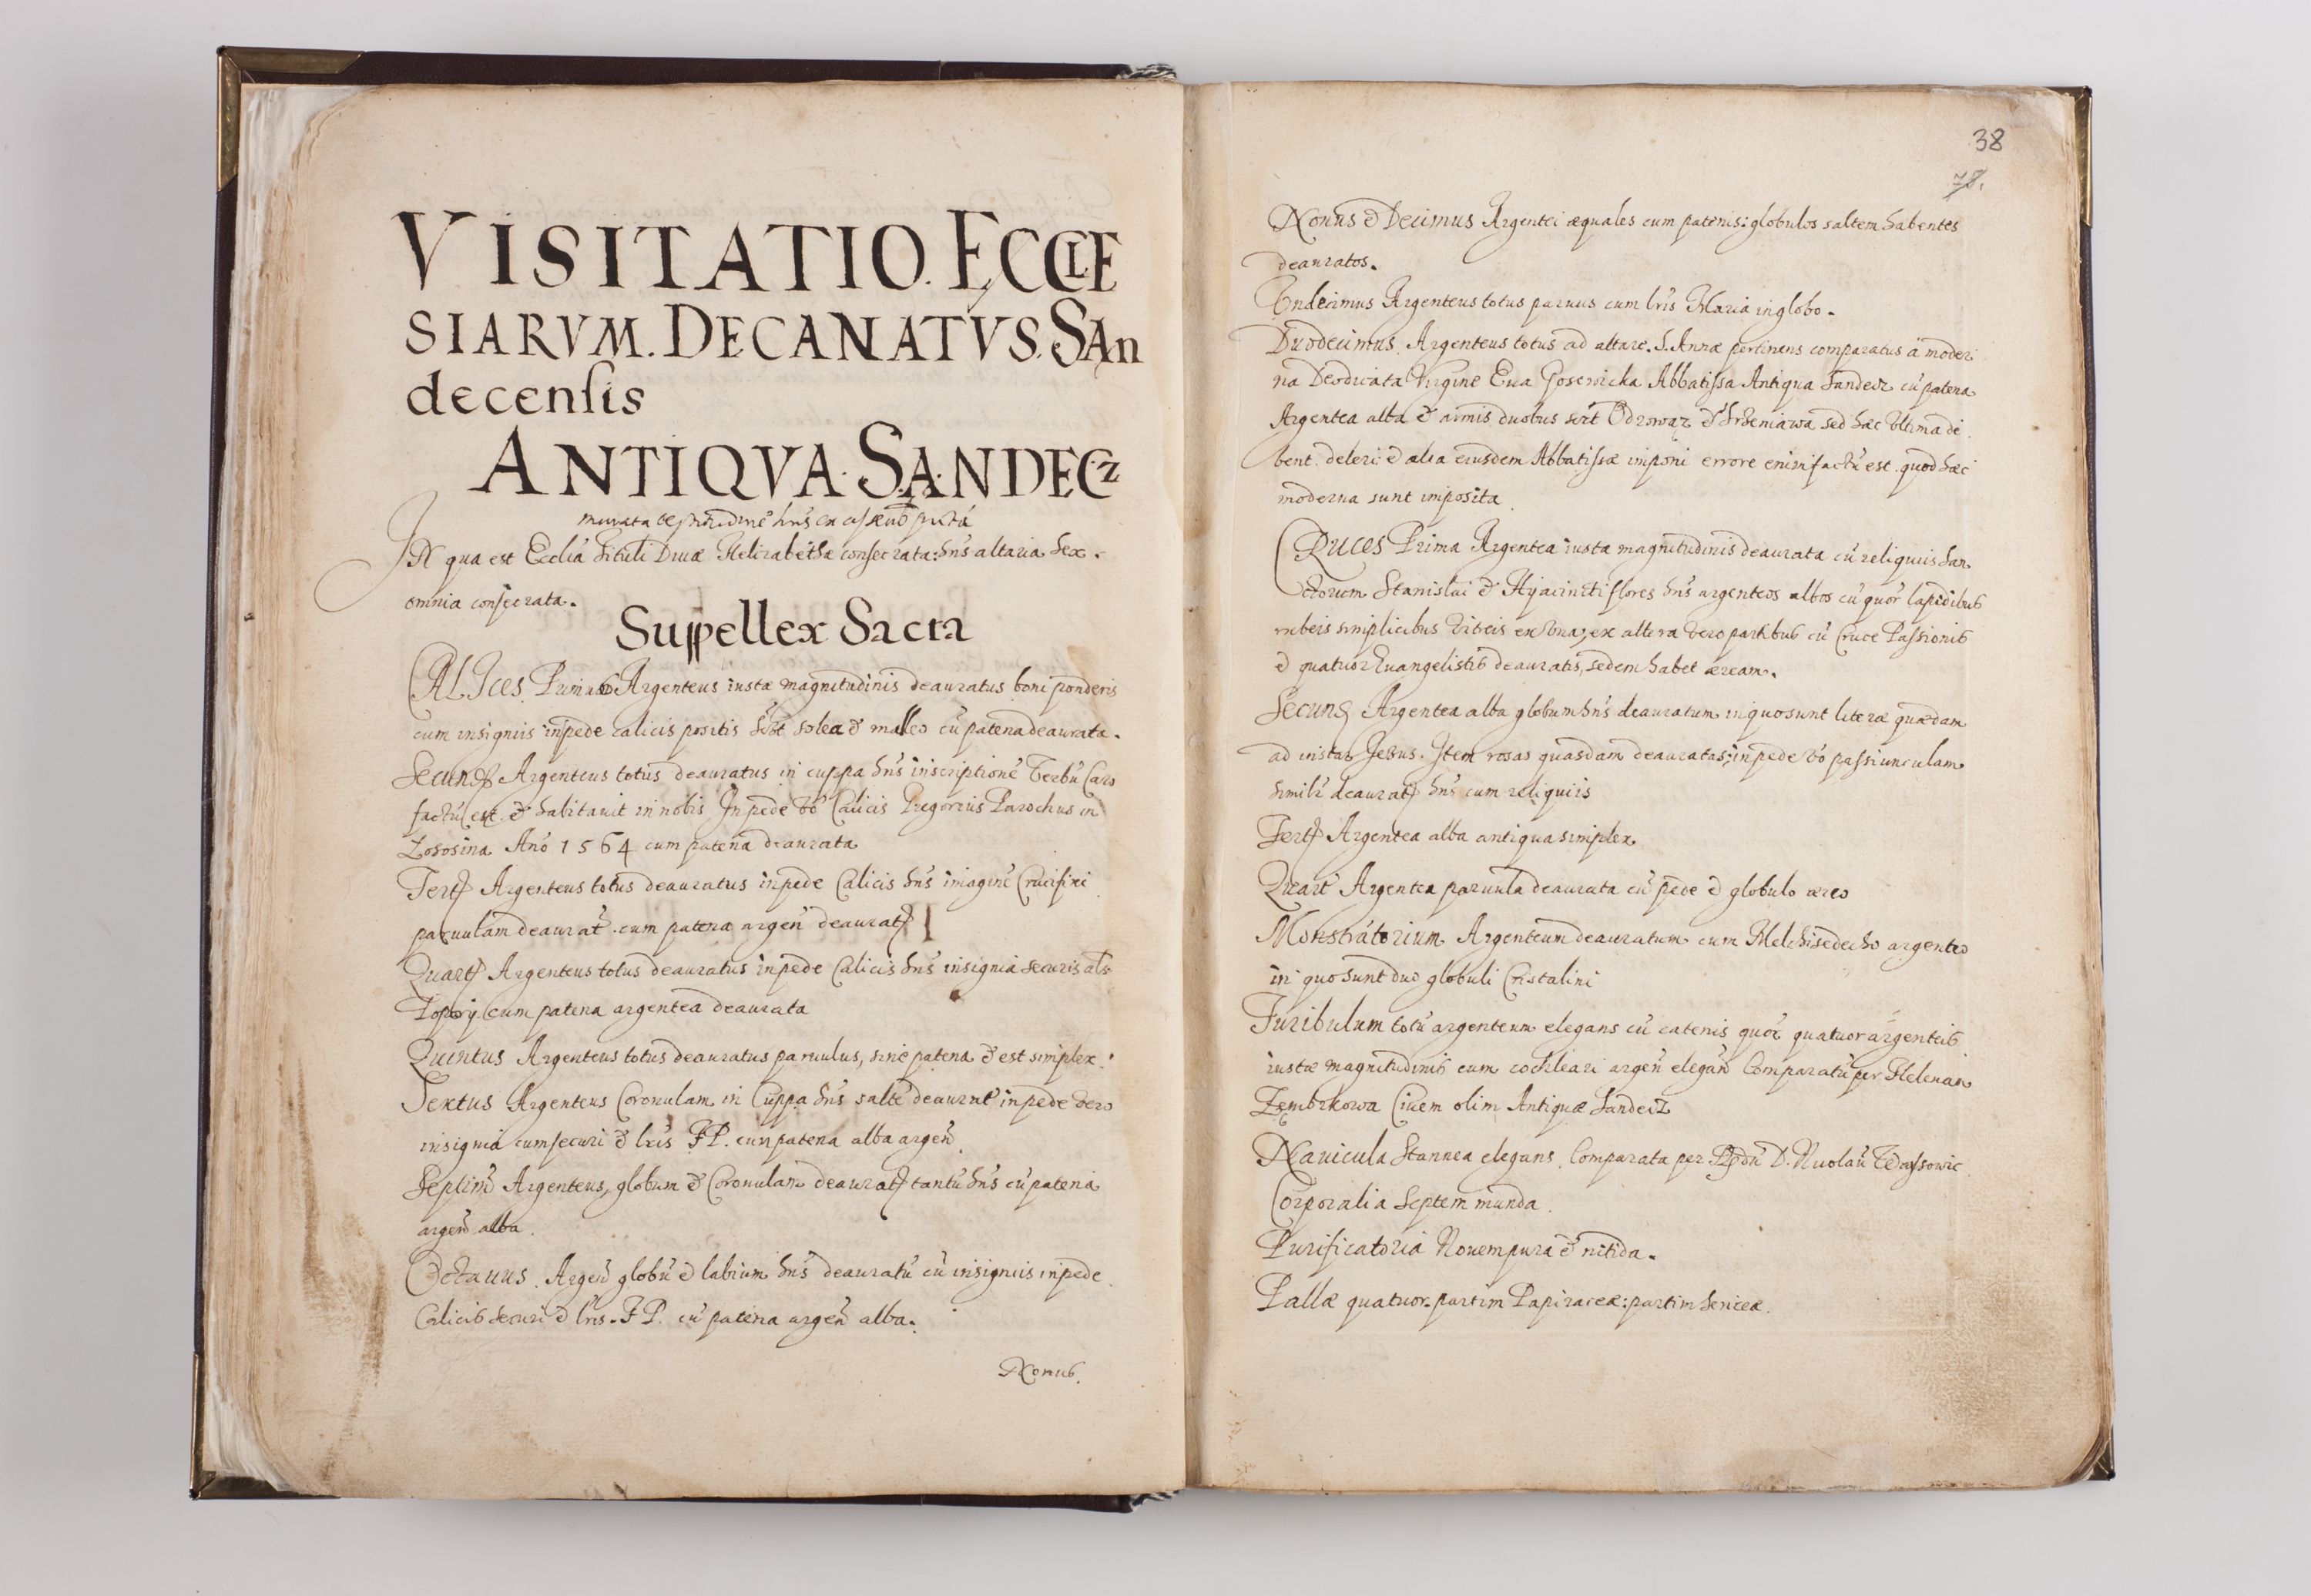 VISITATIO. ECCLE
SIARVM. DECANATVS. SAn
decensis
ANTIQVA. SANDECZ
murata
IN qua est Ecclia tituli Diuæ Helizabethæ consecrata: hns altaria sex.
omnia consecrata.
Suppellex Sacra
CALICes. Primus Argenteus iustæ magnitudinis deauratus boni ponderis
cum insigniis in pede calicis positis sct solea & malleo cū patena deaurata.
Secund9 Argenteus totus deauratus in cuppa hns inscriptionē Verbū Caro
factū est & habitauit in nobis In pede vo Calicis Gregorius Parochus in
Lososina Ano 1564 cum patena deaurata
Terti9 Argenteus totus deauratus in pede Calicis hns imaginē Crucifixi
paruulam deaurat. cum patena argen deaurat
Quart9 Argenteus totus deauratus in pede Calicis hns insignia securis als
Topory cum patena argentea deaurata
Quintus Argenteus totus deauratus paruulus, sine patena & est simplex.
Sextus Argenteus Coronulam in Cuppa hns saltē deaurat in pede vero
insignia cum securi & lris FP. cum patena alba argen.
Septim9 Argenteus, globum & Coronulam deaurat tantū hns cū patena
argen alba.
Octauus. Argen globū & labium hns deauratū cū insigniis in pede
Calicis securi & lris. FP. cū patena argen alba.
Nonus.
38
78.
Nonus & Decimus Argentei æquales cum patenis: globulos saltem habentes
deauratos.
Vndecimus Argenteus totus paruus cum lris Maria in globo.
Duodecimus. Argenteus totus ad altare. S. Annæ pertinens comparatus à moder
na Deodicata Virgine Eua Abbatissa Antiqua Sandecz cū patena
Argentea alba & armis duobus sct Odrowaz & Srzeniawa sed hæc vltima de
bent deleri & alia eiusdem Abbatissæ imponi errore enim factū est quod hæc
moderna sunt imposita.
CRUCES Prima Argentea iustæ magnitudinis deaurata cū reliquiis San
ctorum Stanislai & Hyacinthi flores hns argenteos albos cū quor lapidibus
rubeis simplicibus vitreis ex vna, ex altera vero partibus cū Cruce Passionis
& quatuor Euangelistis deauratis, sedem habet æream.
Secund Argentea alba globum hns deauratum in quo sunt literæ quædam
ad instar Jesus. Item rosas quasdam deauratas; in pede vo passiunculam
similr deaurat hns cum reliquiis
Terti Argentea alba antiqua simplex
Quart Argentea paruula deaurata cū pede & globulo æreo
Monstratorium Argenteum deauratum cum Melchisedecho argenteo
in quo sunt duo globuli Cristalini
Turibulum totū argenteum elegans cū catenis quor quatuor argenteis
iustæ magnitudinis cum cochleari argen elegan Comparatū per Helenam
Zembrkowa Ciuem olim Antiquæ Sandecz
Nauicula Stannea elegans. Comparata per D. Nicolaū
Corporalia Septem munda.
Purificatoria Nouem pura & nitida.
Pallæ quatuor partim Papiraceæ: partim Sericeæ.